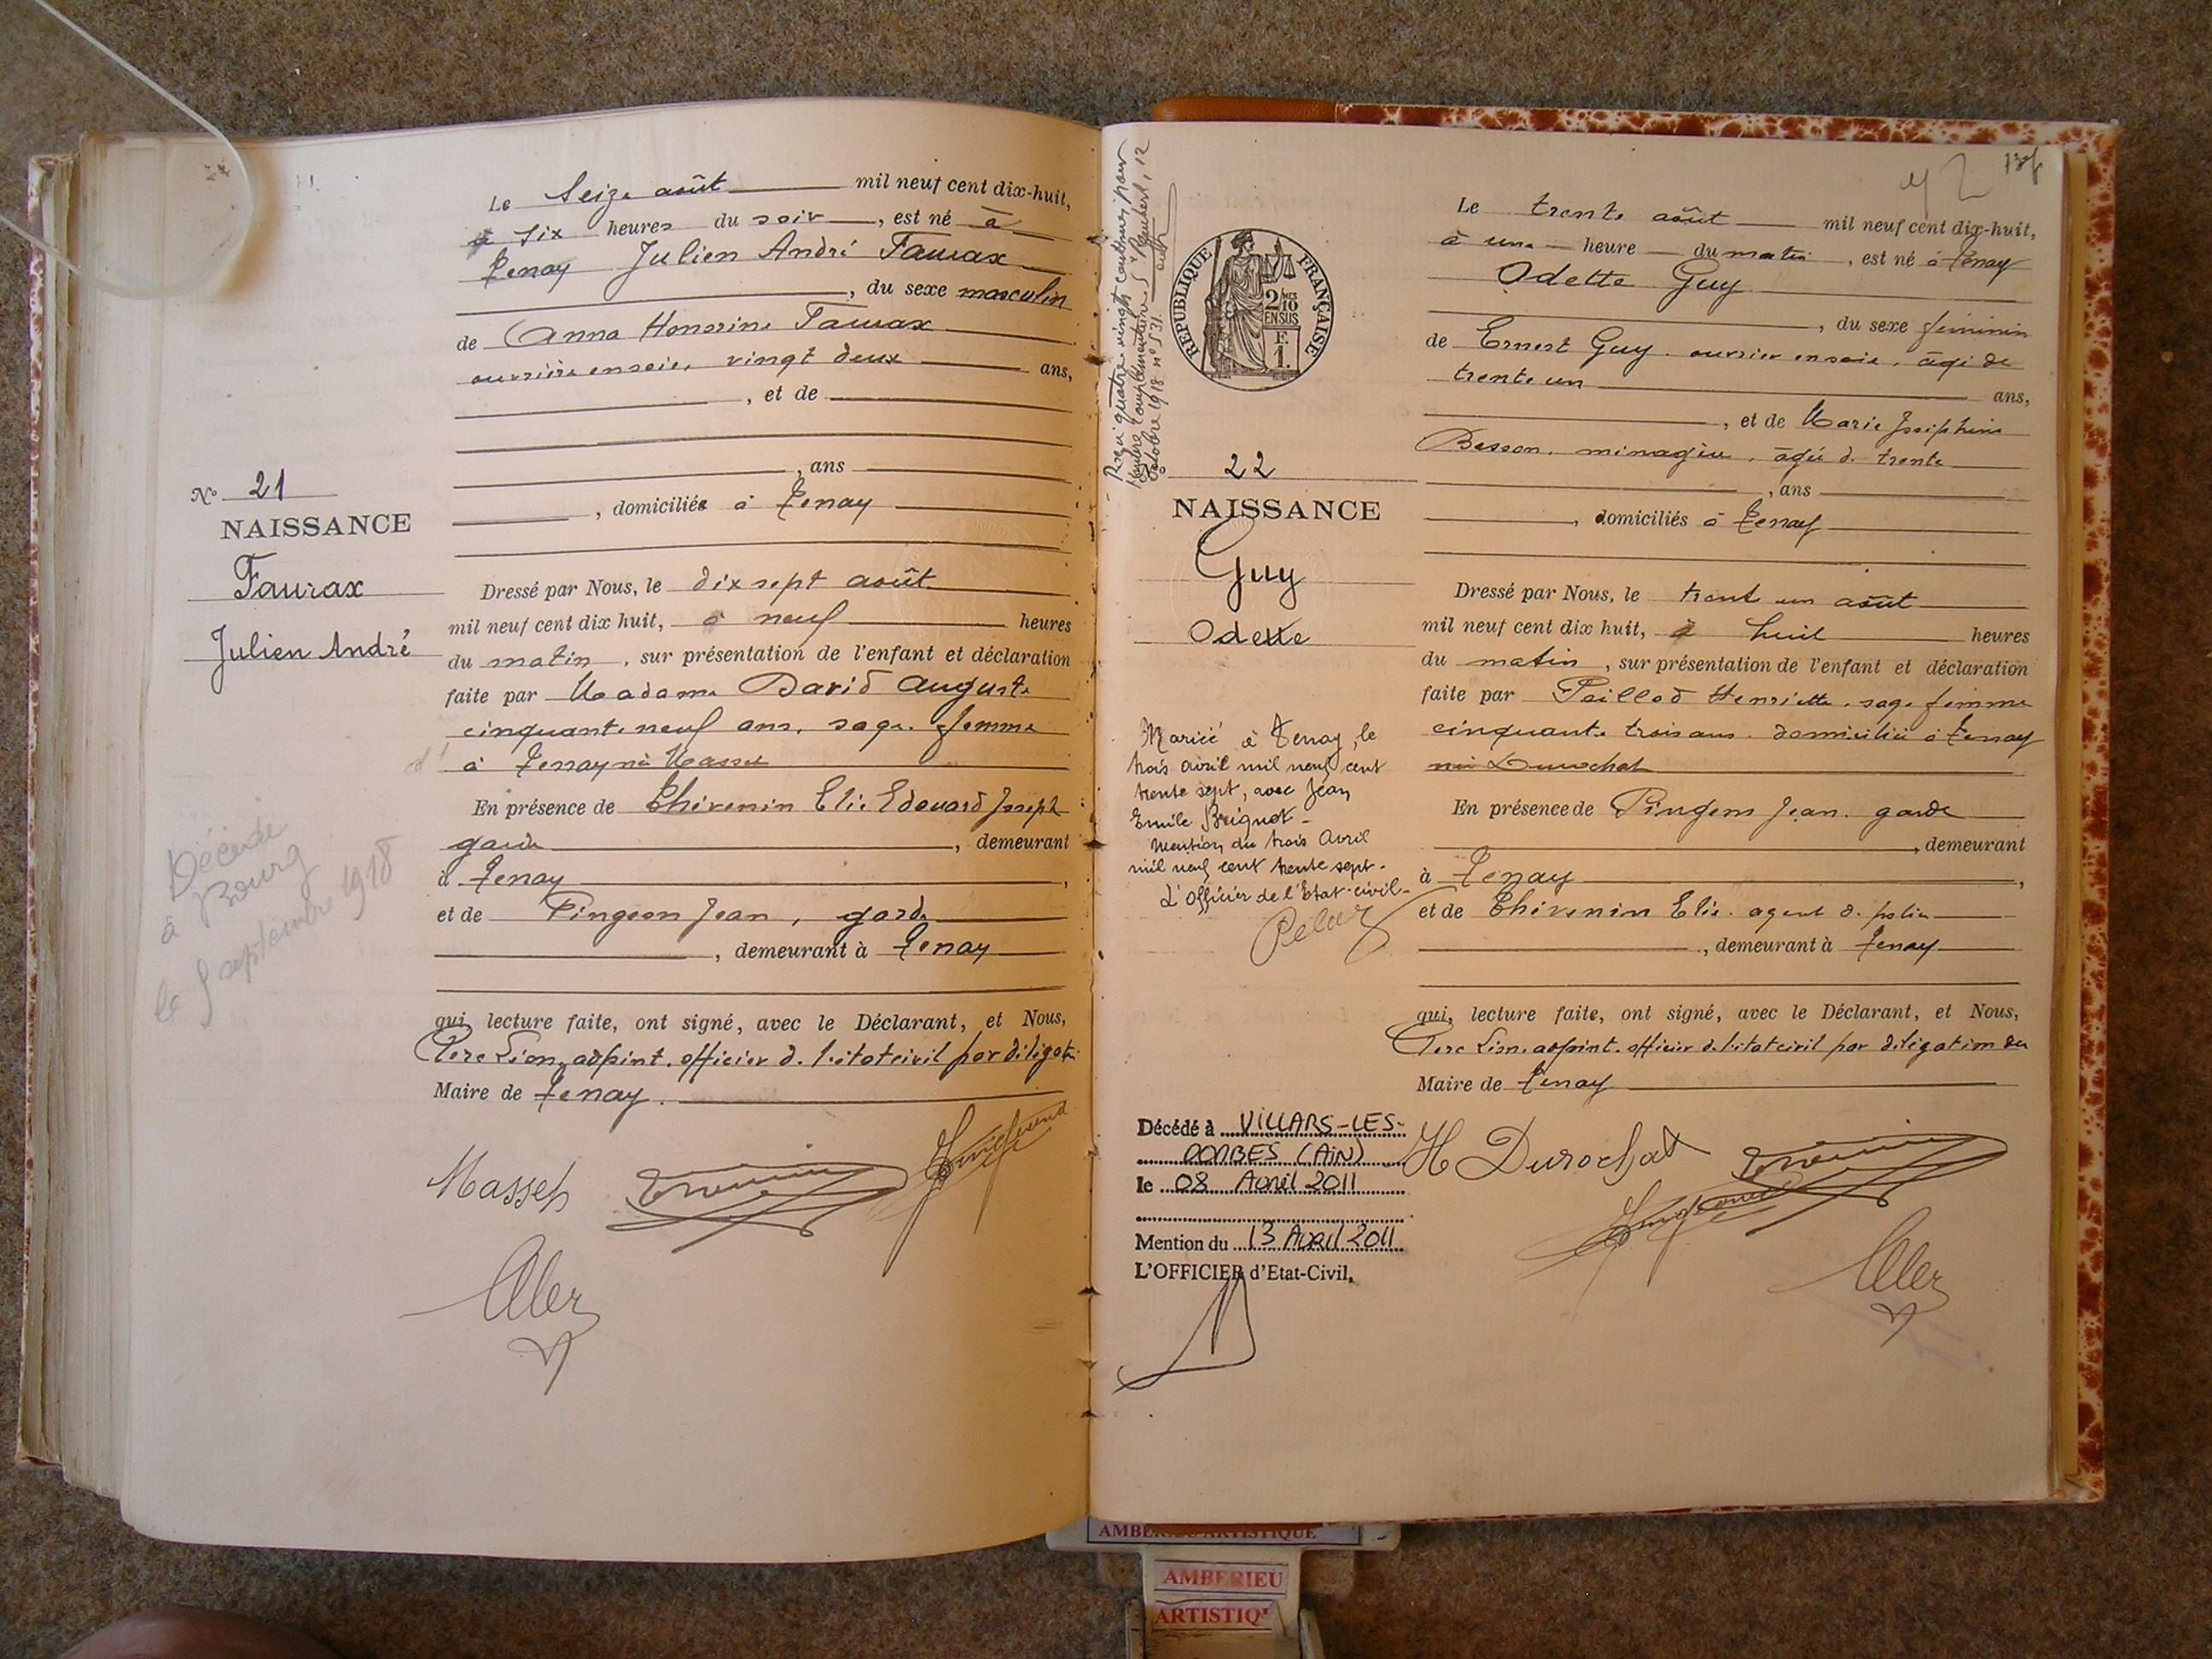 Le Seize août mil neuf cent dix-huit,
à six heures du soir, est né à
Tenay Julien André Faurax
, du sexe masculin
de Anna Honorine Faurax
ouvrière en soie, vingt deux ans,
, et de
, ans
, domiciliée à Tenay
N° 21
NAISSANCE
Faurax
Julien André
Décédé
à Bourg
le septembre 1918
Dressé par Nous, le dix sept août
mil neuf cent dix huit, à neuf heures
du matin, sur présentation de l'enfant et déclaration
faite par Madame David Auguste
cinquante neuf ans, sage femme
à Tenay née Massu
En présence de Thévenin Elie Edouard Joseph
garde, demeurant
à Tenay,
et de Pingeon Jean, garde
, demeurant à Tenay
qui, lecture faite, ont signé, avec le Déclarant, et Nous,
adjoint, officier de l'état civil par délégation
Maire de Tenay.
138
Le trente août mil neuf cent dix-huit,
à une heure du matin, est né à Tenay
Odette Guy
, du sexe féminin
de Ernest Guy, ouvrier en soie, âgé de
trente un ans,
, et de Marie Joséphine
Besson, ménagère, âgée de trente
, ans
, domiciliés à Tenay
REPUBLIQUE FRANÇAISE
2/10 EN SUS
1.
22
NAISSANCE
Guy
Odette
Mariée à Tenay, le
trois avril mil neuf cent
trente sept, avec Jean
Emile Briguot -
Mention du trois Avril
mil neuf cent trente sept -
L'officier de l'Etat-civil -
Dressé par Nous, le trent un août
mil neuf cent dix huit, à huit heures
du matin, sur présentation de l'enfant et déclaration
faite par Peillod Henriette, sage femme
cinquante trois ans, domiciliée à Tenay
née Durochat
En présence de Pingeon Jean, garde
, demeurant
à Tenay,
et de Thévenin Elie, agent de police
, demeurant à Tenay
qui, lecture faite, ont signé, avec le Déclarant, et Nous,
adjoint, officier de l'état civil par délégation du
Maire de Tenay
H Durochat
Décédé à VILLARS-LES-
DOMBES (AIN)
le 08 Avril 2011
Mention du 13 Avril 2011
L'OFFICIER d'Etat-Civil,
AMBERIEU ARTISTIQUE
AMBERIEU
ARTISTIQ